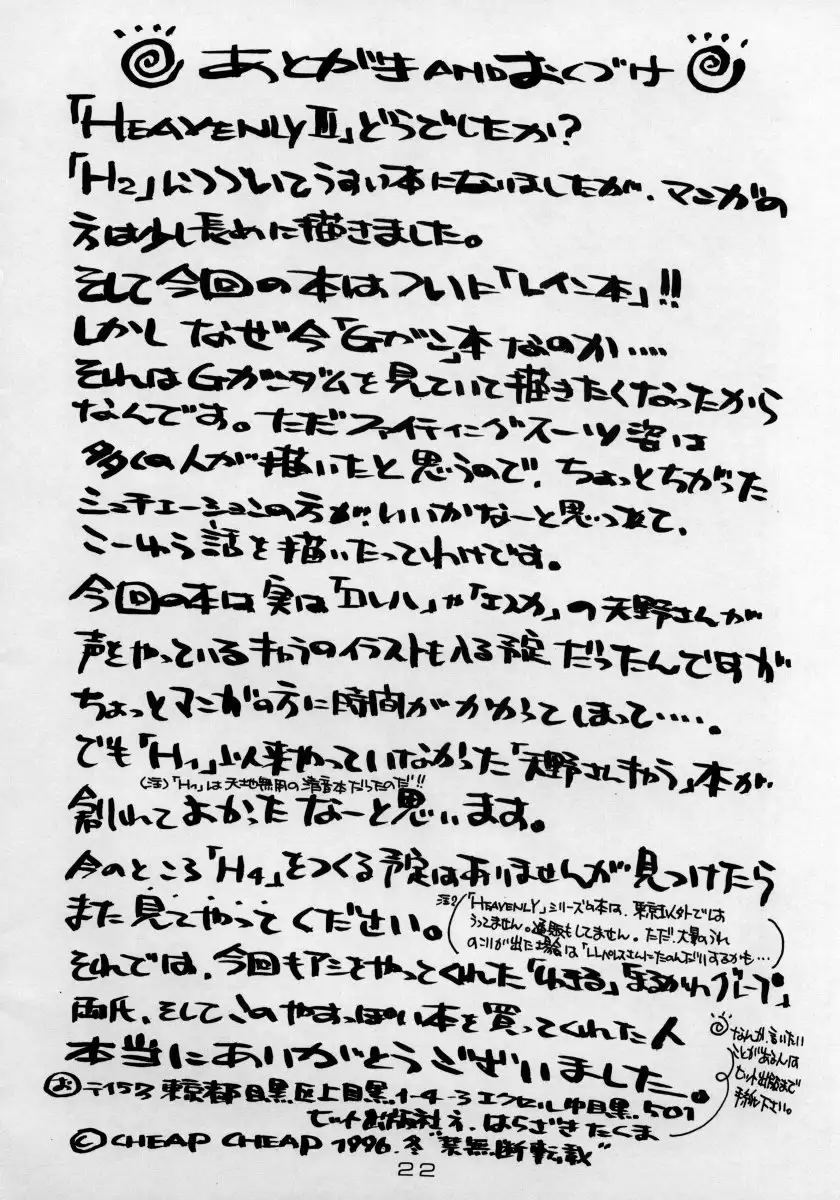 あとがき ANDおくづけ
「HEAVENLYⅢ」どうでしたか?
「H2」につづいてうすい本になりましたが、マンガの
方は少し長めに描きました。
そして今回の本はついに「レイン本」!!
しかし なぜ今「Gガン」本なのか‥‥
それはGガンダムを見ていて描きたくなったから
なんです。ただファイティングスーツ姿は
多くの人が描いたと思うので、ちょっとちがった
シュチェーションの方が、いいかなーと思って、
こーゆう話を描いたってわけです。
今回の本は実は「ロレル」や「エスカ」の天野さんが
声をやっているキャラのイラストも入る予定だったんですが
ちょっとマンガの方に時間がかかってしまって‥‥。
でも「H1」以来やっていなかった「天野さんキャラ」本が
(注)「H1」は天地無用の清音本だったのだ!!
創れてよかったなーと思います。
今のところ「H4」をつくる予定はありませんが見つけたら
また見てやってください。
注2(「HEAVENLY」シリーズの本は、東京以外では
うってません。通販もしてません。ただ、大量のうれ
のこりが出た場合は「LLパレスさんにたのんだりするかも‥‥)
それでは、今回もアシをやってくれた「ゆきる」「まるかわグループ」
両氏、そしてこのやすっぽい本を買ってくれた人
本当にありがとうございました。
なんか、言いたい
ことがあるんは
ヒット出版まで
手紙下さい。
お 〒153 東京都目黒区上目黒1-4-3エクセル中目黒501
ヒット出版社方、はらざきたくま
© CHEAP CHEAP 1996.冬 "禁無断転載"
22